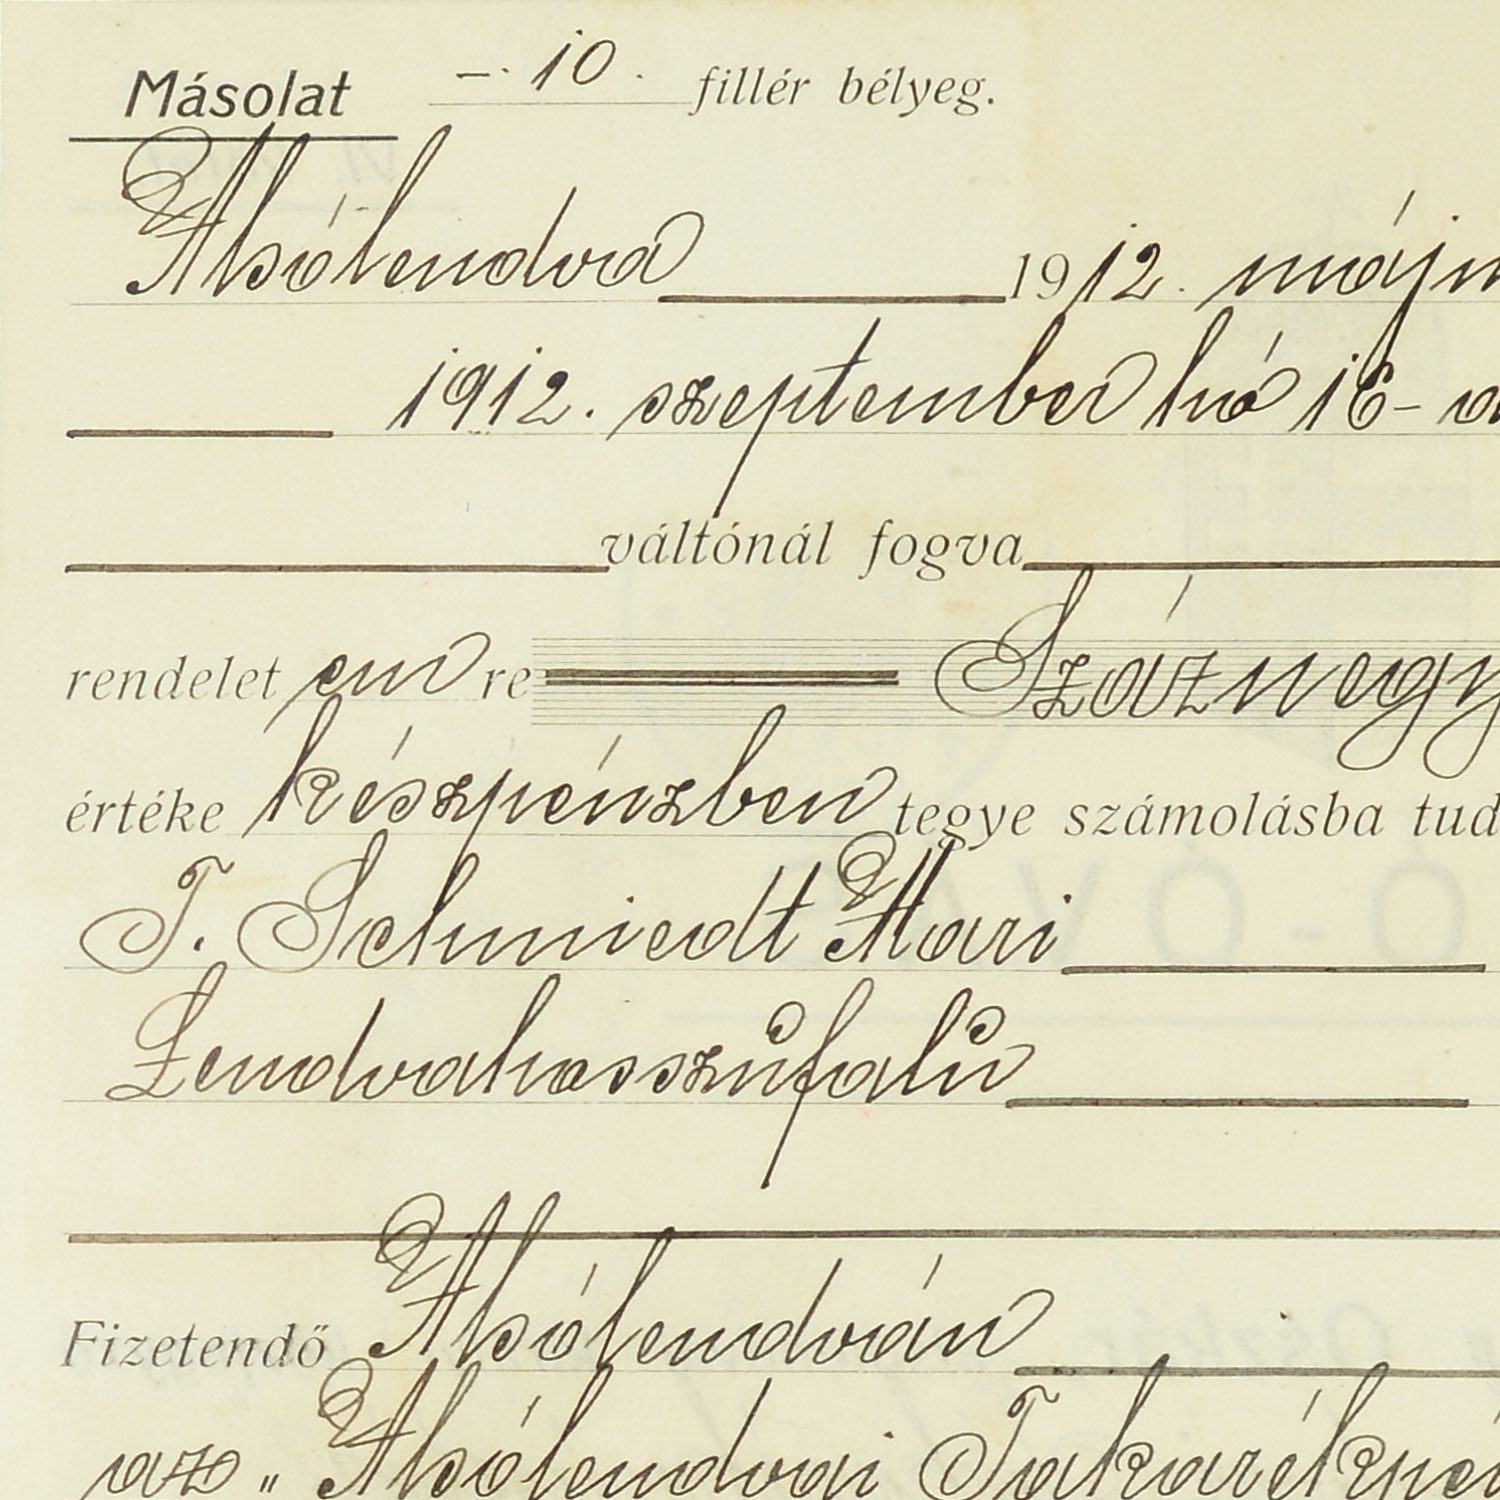 Másolat –. 10. fillér bélyeg.
Alsólendva 1912. máj
1912. szeptember hó 16-
váltónál fogva
rendelet em re Száznegy
értéke készpénzben tegye számolásba tud
T. Schmiedt Mari
Lendvahosszúfalu
Fizetendő Alsólendván
az „Alsólendvai Takarékpé